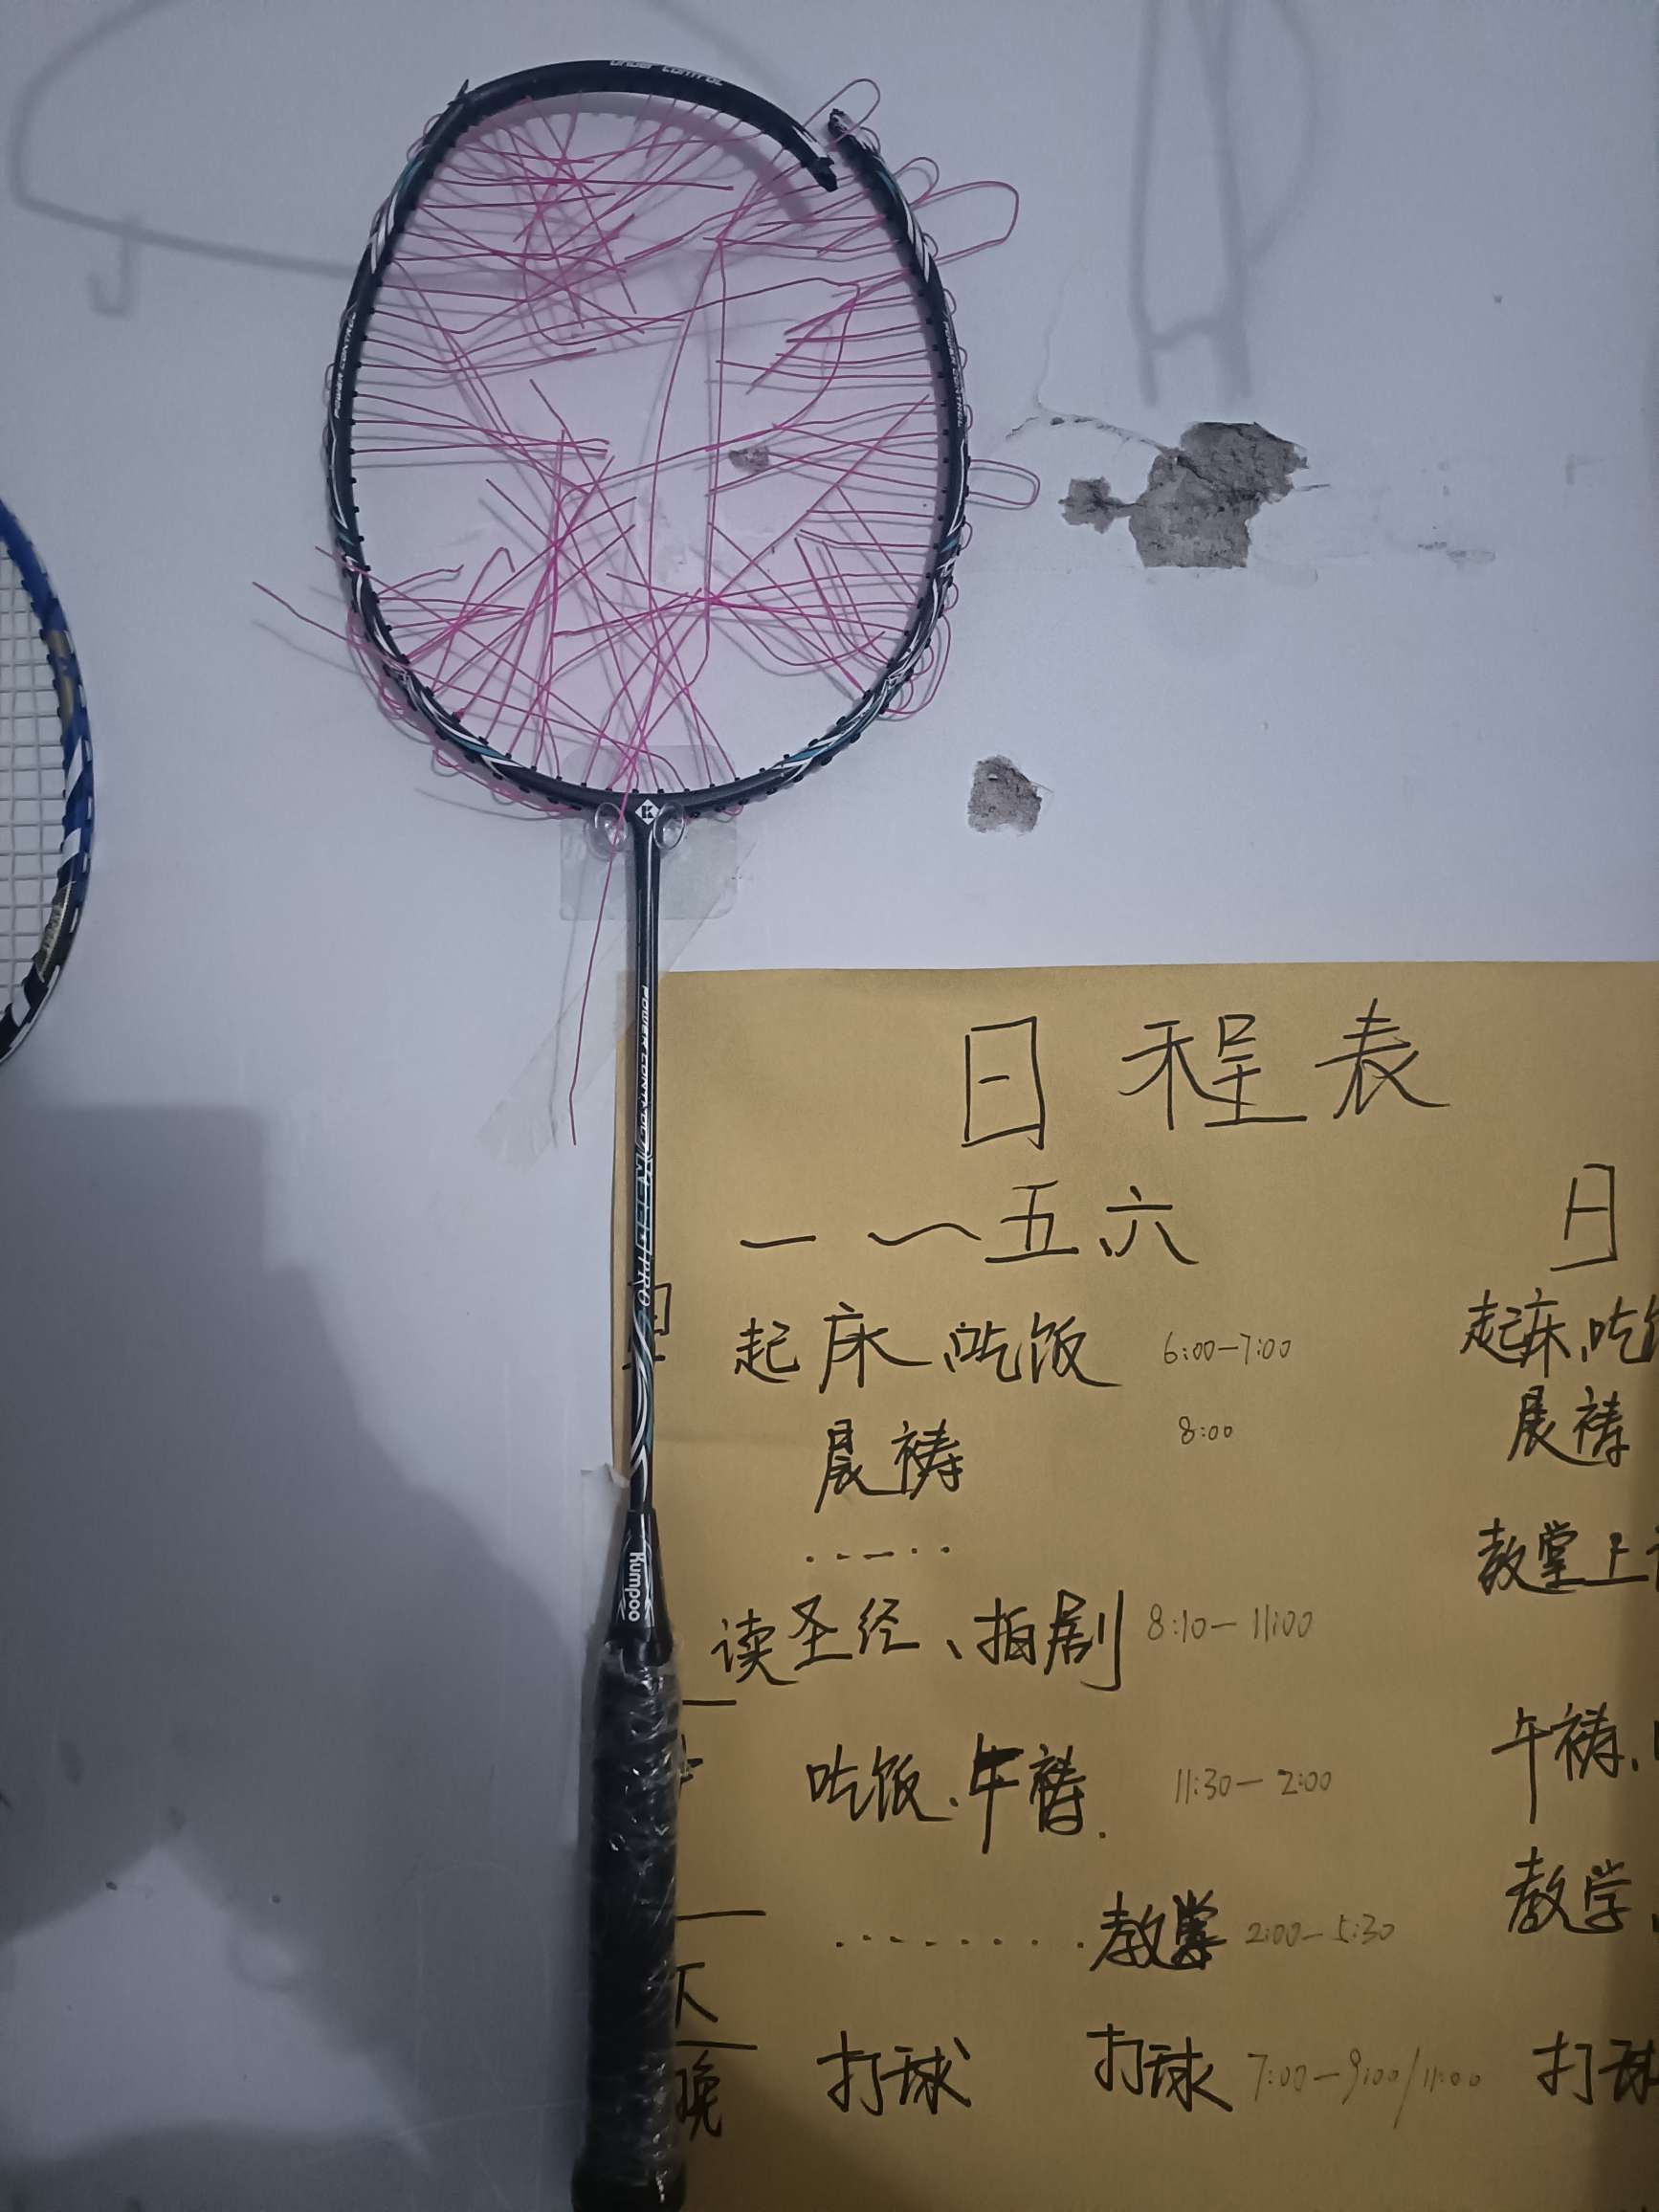 under control
POWER CONTROL
POWER CONTROL
K
POWER CONTROL
PRO
Kumpoo
日程表
一~五、六 日
起床、吃饭 6:00-7:00 起床、吃
晨祷 8:00 晨祷
...... 教堂上
读圣经、拍剧 8:10-11:00
吃饭、午祷. 11:30-2:00 午祷、
........教堂 2:00-5:30 教学、
晚 打球 打球 7:00-9:00/11:00 打球